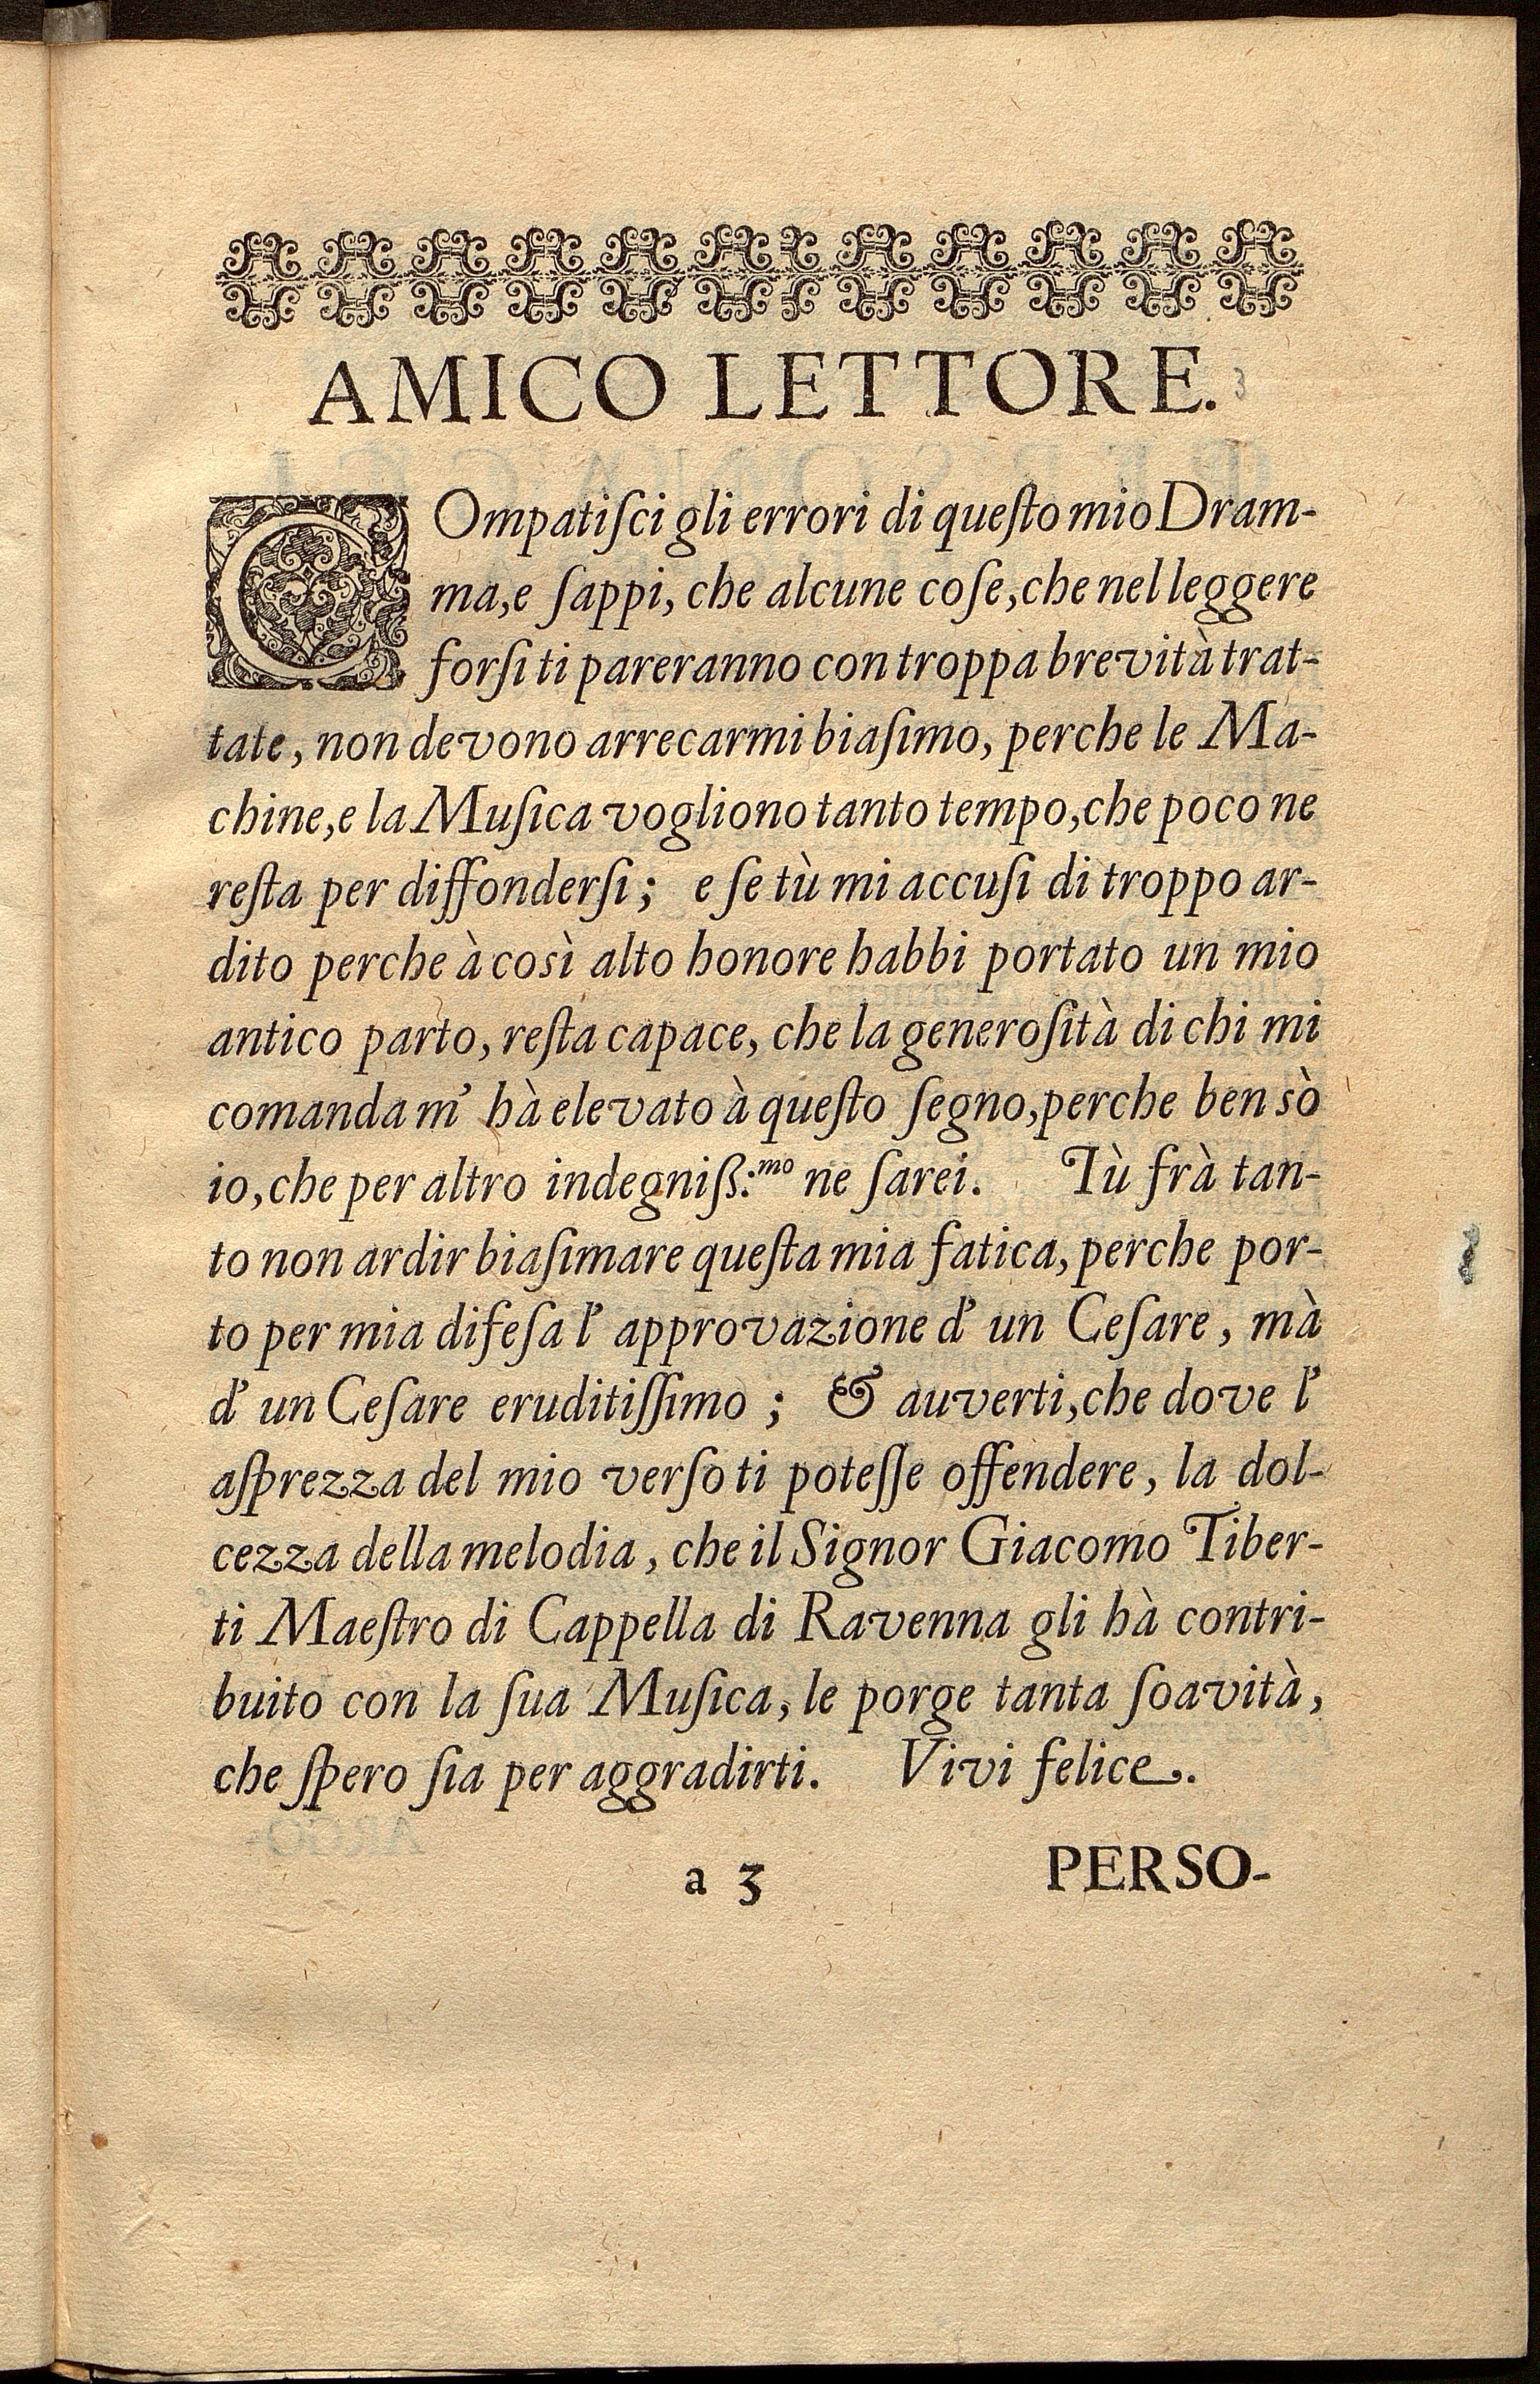 AMICO LETTORE.
COmpatiſci gli errori di queſto mio Dram-
ma, e ſappi, che alcune coſe, che nel leggere
forſi ti pareranno con troppa brevità trat-
tate, non devono arrecarmi biaſimo, perche le Ma-
chine, e la Muſica vogliono tanto tempo, che poco ne
reſta per diffonderſi; e ſe tù mi accuſi di troppo ar-
dito perche à così alto honore habbi portato un mio
antico parto, reſta capace, che la generoſità di chi mi
comanda m' hà elevato à queſto ſegno, perche ben sò
io, che per altro indegniß:mo ne ſarei. Tù frà tan-
to non ardir biaſimare queſta mia fatica, perche por-
to per mia difeſa l' approvazione d' un Ceſare, mà
d' un Ceſare eruditiſſimo; & auverti, che dove l'
aſprezza del mio verſo ti poteſſe offendere, la dol-
cezza della melodia, che il Signor Giacomo Tiber-
ti Maeſtro di Cappella di Ravenna gli hà contri-
buito con la ſua Muſica, le porge tanta ſoavità,
che ſpero ſia per aggradirti. Vivi felice.
a 3 PERSO-